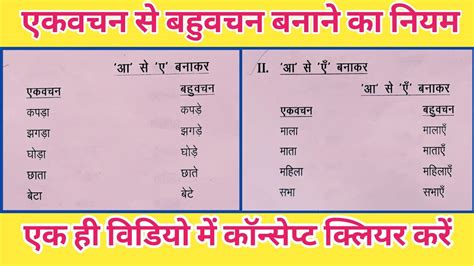 एकवचन से बहुवचन बनाने का नियम
'आ' से 'ए' बनाकर
एकवचन बहुवचन
कपड़ा कपड़े
झगड़ा झगड़े
घोड़ा घोड़े
छाता छाते
बेटा बेटे
II. 'आ' से 'एँ' बनाकर
'आ' से 'एँ' बनाकर
एकवचन बहुवचन
माला मालाएँ
माता माताएँ
महिला महिलाएँ
सभा सभाएँ
एक ही विडियो में कॉन्सेप्ट क्लियर करें